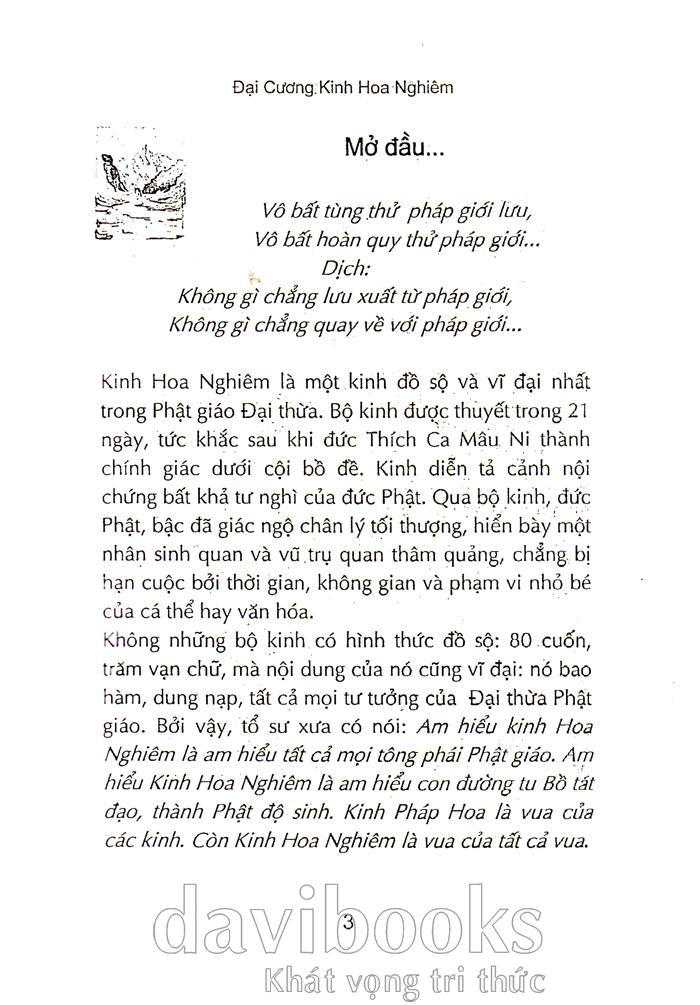 Đại Cương Kinh Hoa Nghiêm
Mở đầu...
Vô bất tùng thử pháp giới lưu,
Vô bất hoàn quy thử pháp giới...
Dịch:
Không gì chẳng lưu xuất từ pháp giới,
Không gì chẳng quay về với pháp giới...
Kinh Hoa Nghiêm là một kinh đồ sộ và vĩ đại nhất
trong Phật giáo Đại thừa. Bộ kinh được thuyết trong 21
ngày, tức khắc sau khi đức Thích Ca Mâu Ni thành
chính giác dưới cội bồ đề. Kinh diễn tả cảnh nội
chứng bất khả tư nghì của đức Phật. Qua bộ kinh, đức
Phật, bậc đã giác ngộ chân lý tối thượng, hiển bày một
nhân sinh quan và vũ trụ quan thâm quảng, chẳng bị
hạn cuộc bởi thời gian, không gian và phạm vi nhỏ bé
của cá thể hay văn hóa.
Không những bộ kinh có hình thức đồ sộ: 80 cuốn,
trăm vạn chữ, mà nội dung của nó cũng vĩ đại: nó bao
hàm, dung nạp, tất cả mọi tư tưởng của Đại thừa Phật
giáo. Bởi vậy, tổ sư xưa có nói: Am hiểu kinh Hoa
Nghiêm là am hiểu tất cả mọi tông phái Phật giáo. Am
hiểu Kinh Hoa Nghiêm là am hiểu con đường tu Bồ tát
đạo, thành Phật độ sinh. Kinh Pháp Hoa là vua của
các kinh. Còn Kinh Hoa Nghiêm là vua của tất cả vua.
davibooks
3
Khát vọng tri thức